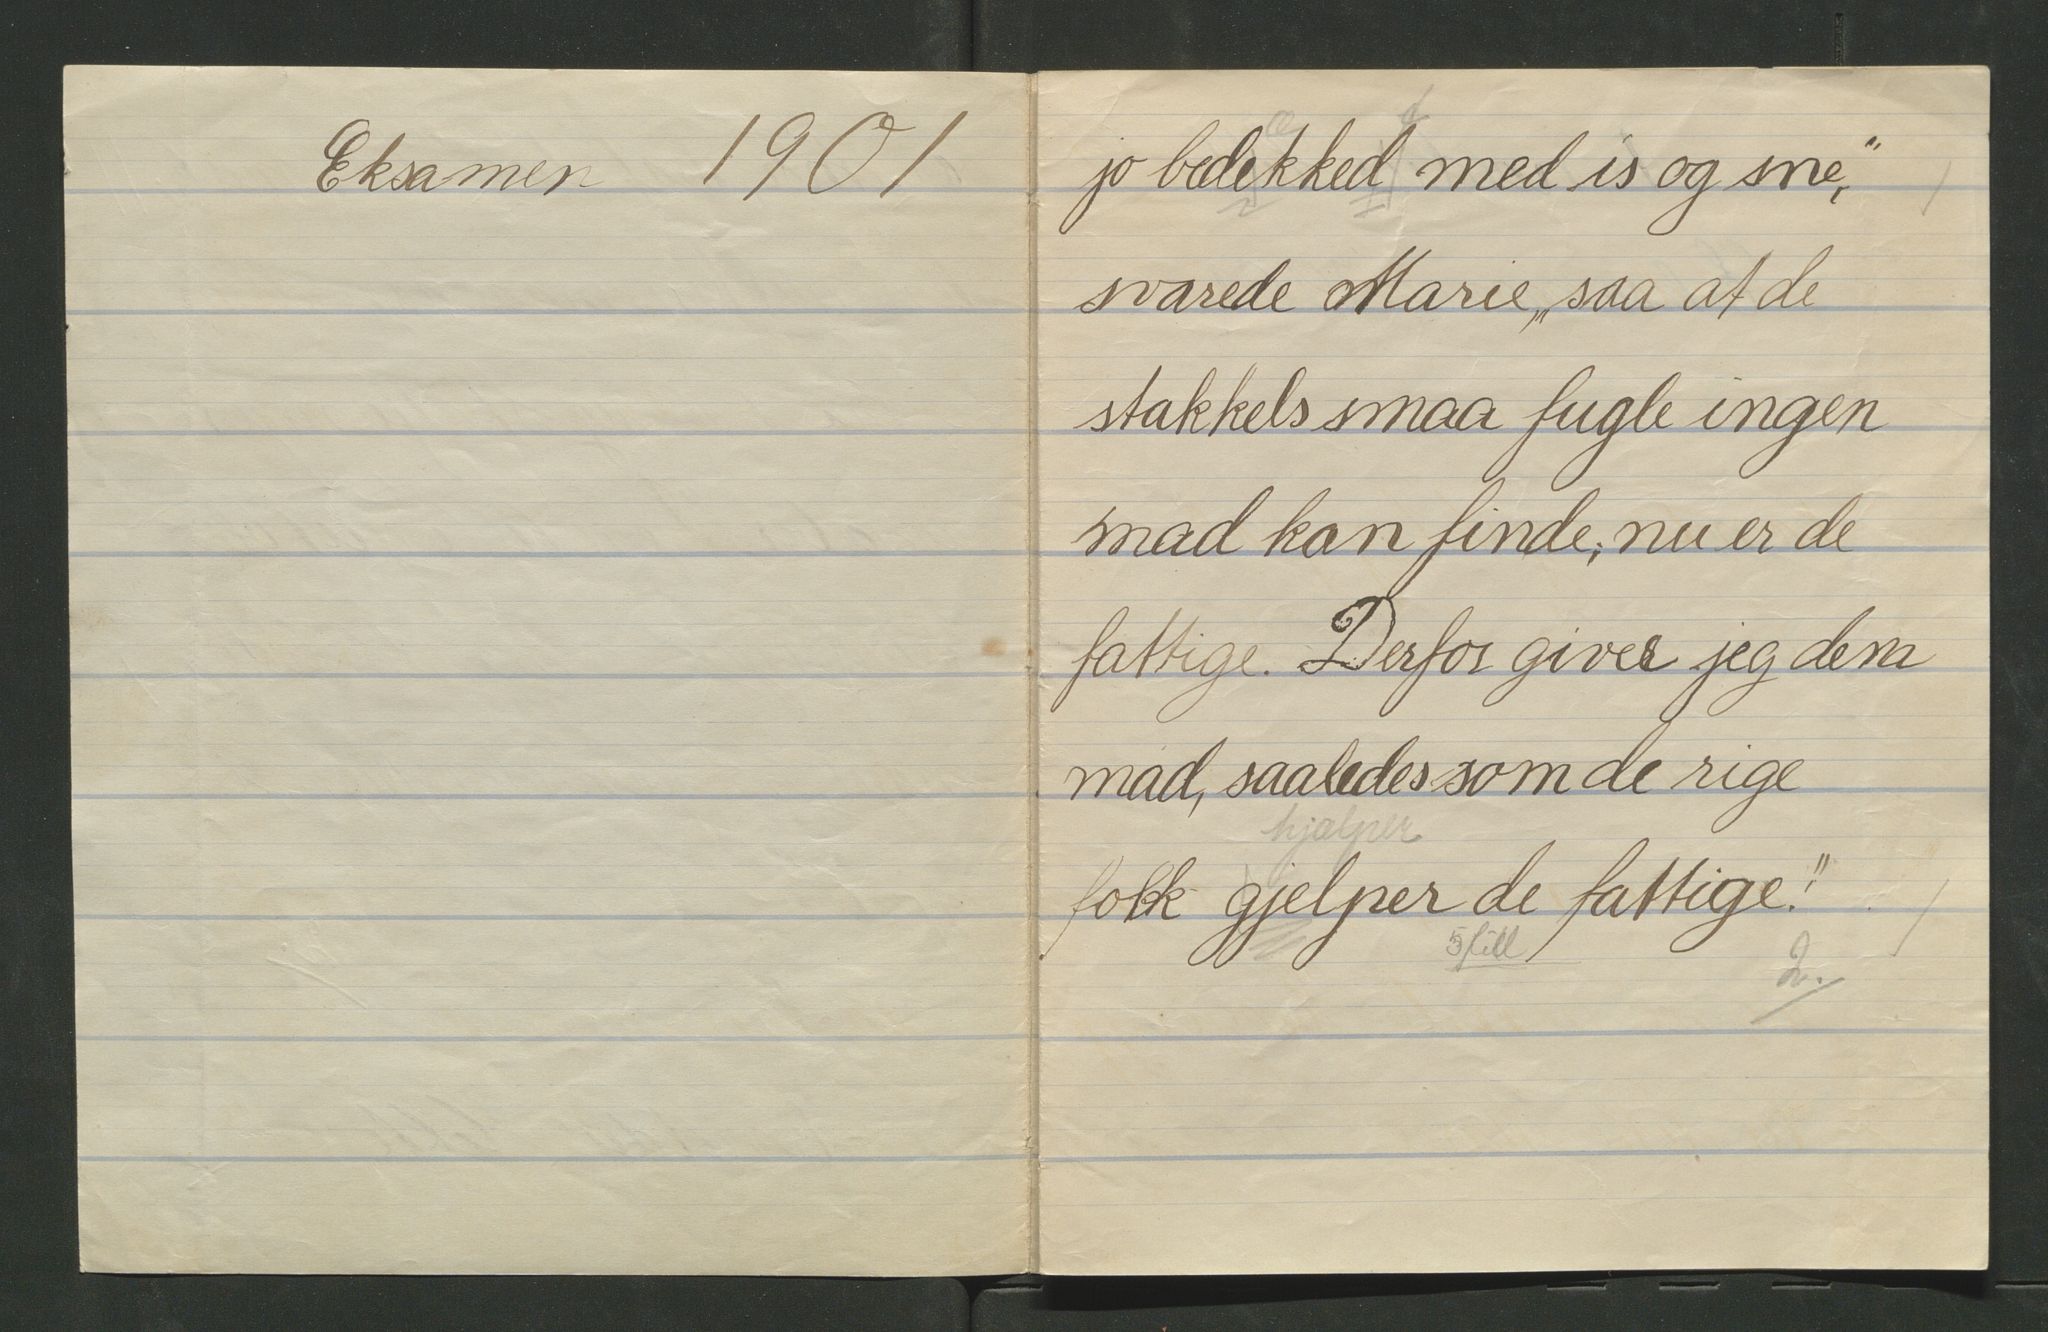 Eksamen 1901
jo bedekked med is og sne,"
svarede Marie, „saa at de
stakkels smaa fugle ingen
mad kan finde; nu er de
fattige. Derfor giver jeg dem
mad, saaledes som de rige
hjælper
folk gjelper de fattige."
5 fell
2.